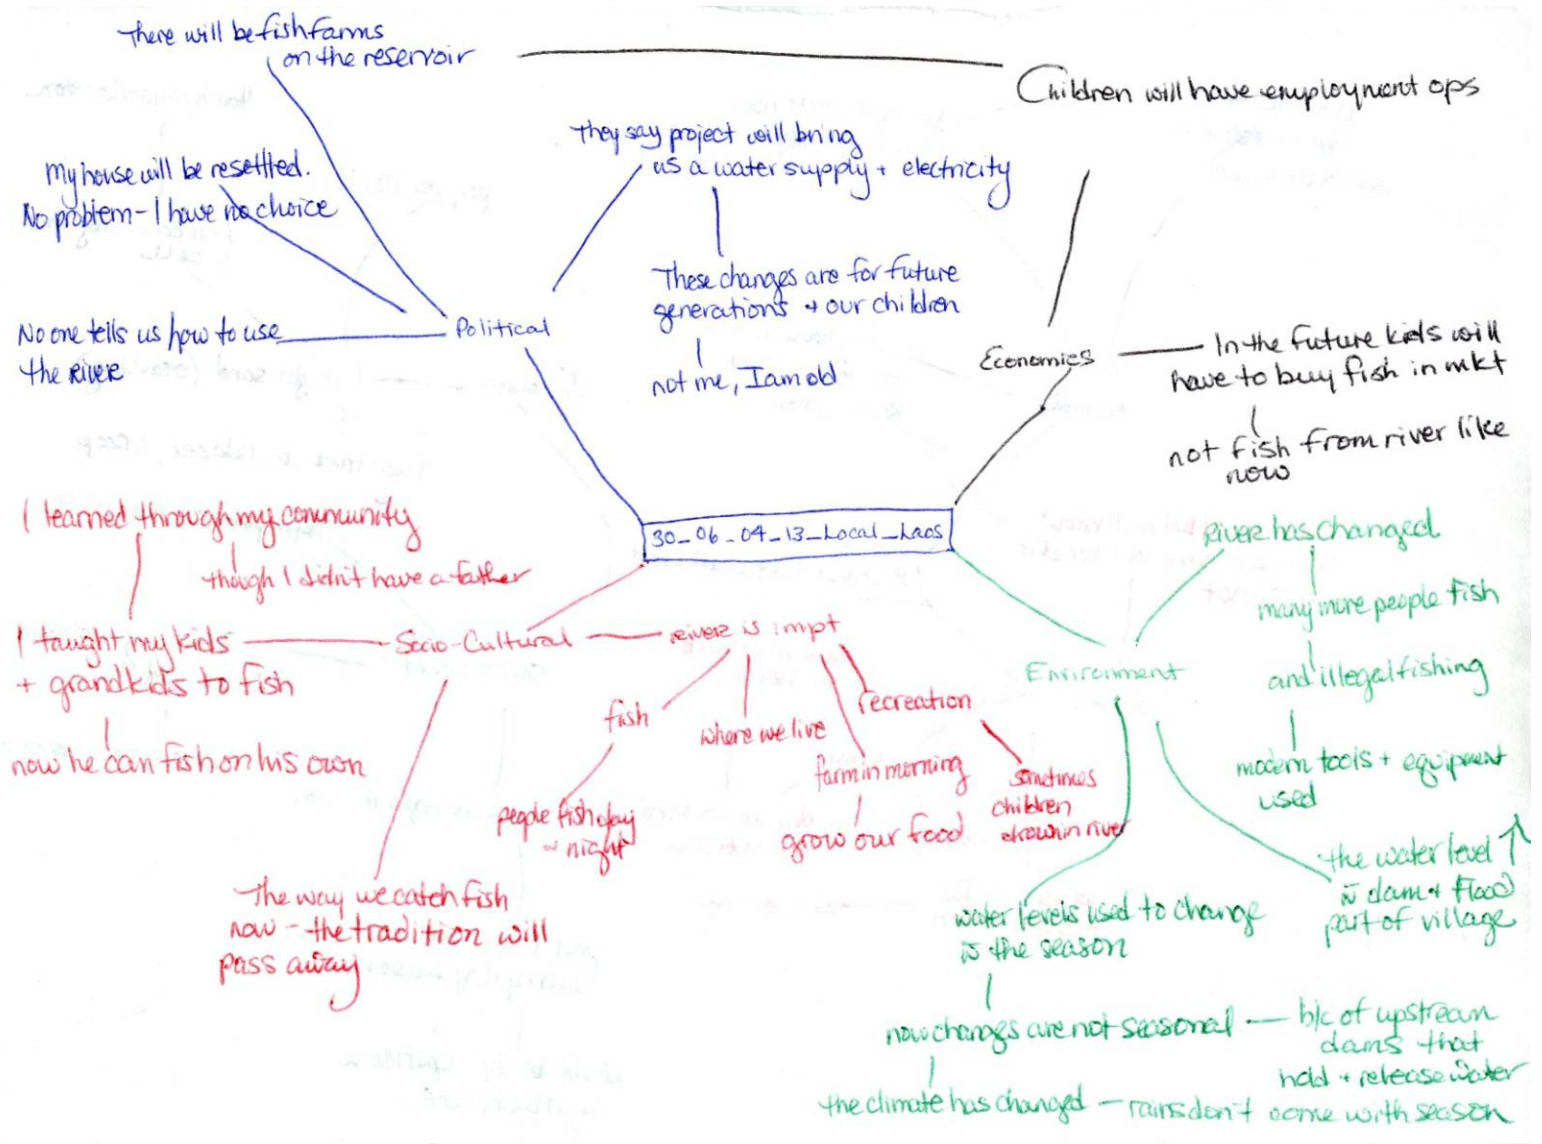 There will be fish farms
on the reservoir
Children will have employment ops
They say project will bring
us a water supply + electricity
My house will be resettled.
No problem - I have no choice
These changes are for future
generations + our children
not me, I am old
No one tells us how to use
the river
Political
Economies
In the future kids will
have to buy fish in mkt
not fish from river like
now
30_06_04_13_Local_Laos
I learned through my community
though I didn't have a father
I taught my kids
+ grandkids to fish
now he can fish on his own
Socio-Cultural
River is impt
fish
people fish day
+ night
where we live
farm in morning
grow our food
recreation
sometimes
children
drown in river
The way we catch fish
now - the tradition will
pass away
Environment
River has changed
many more people fish
and illegal fishing
modern tools + equipment
used
the water level ↑
w̄ dam + flood
part of village
water levels used to change
w̄ the season
now changes are not seasonal
b/c of upstream
dams that
hold + release water
the climate has changed — rains don't come with season